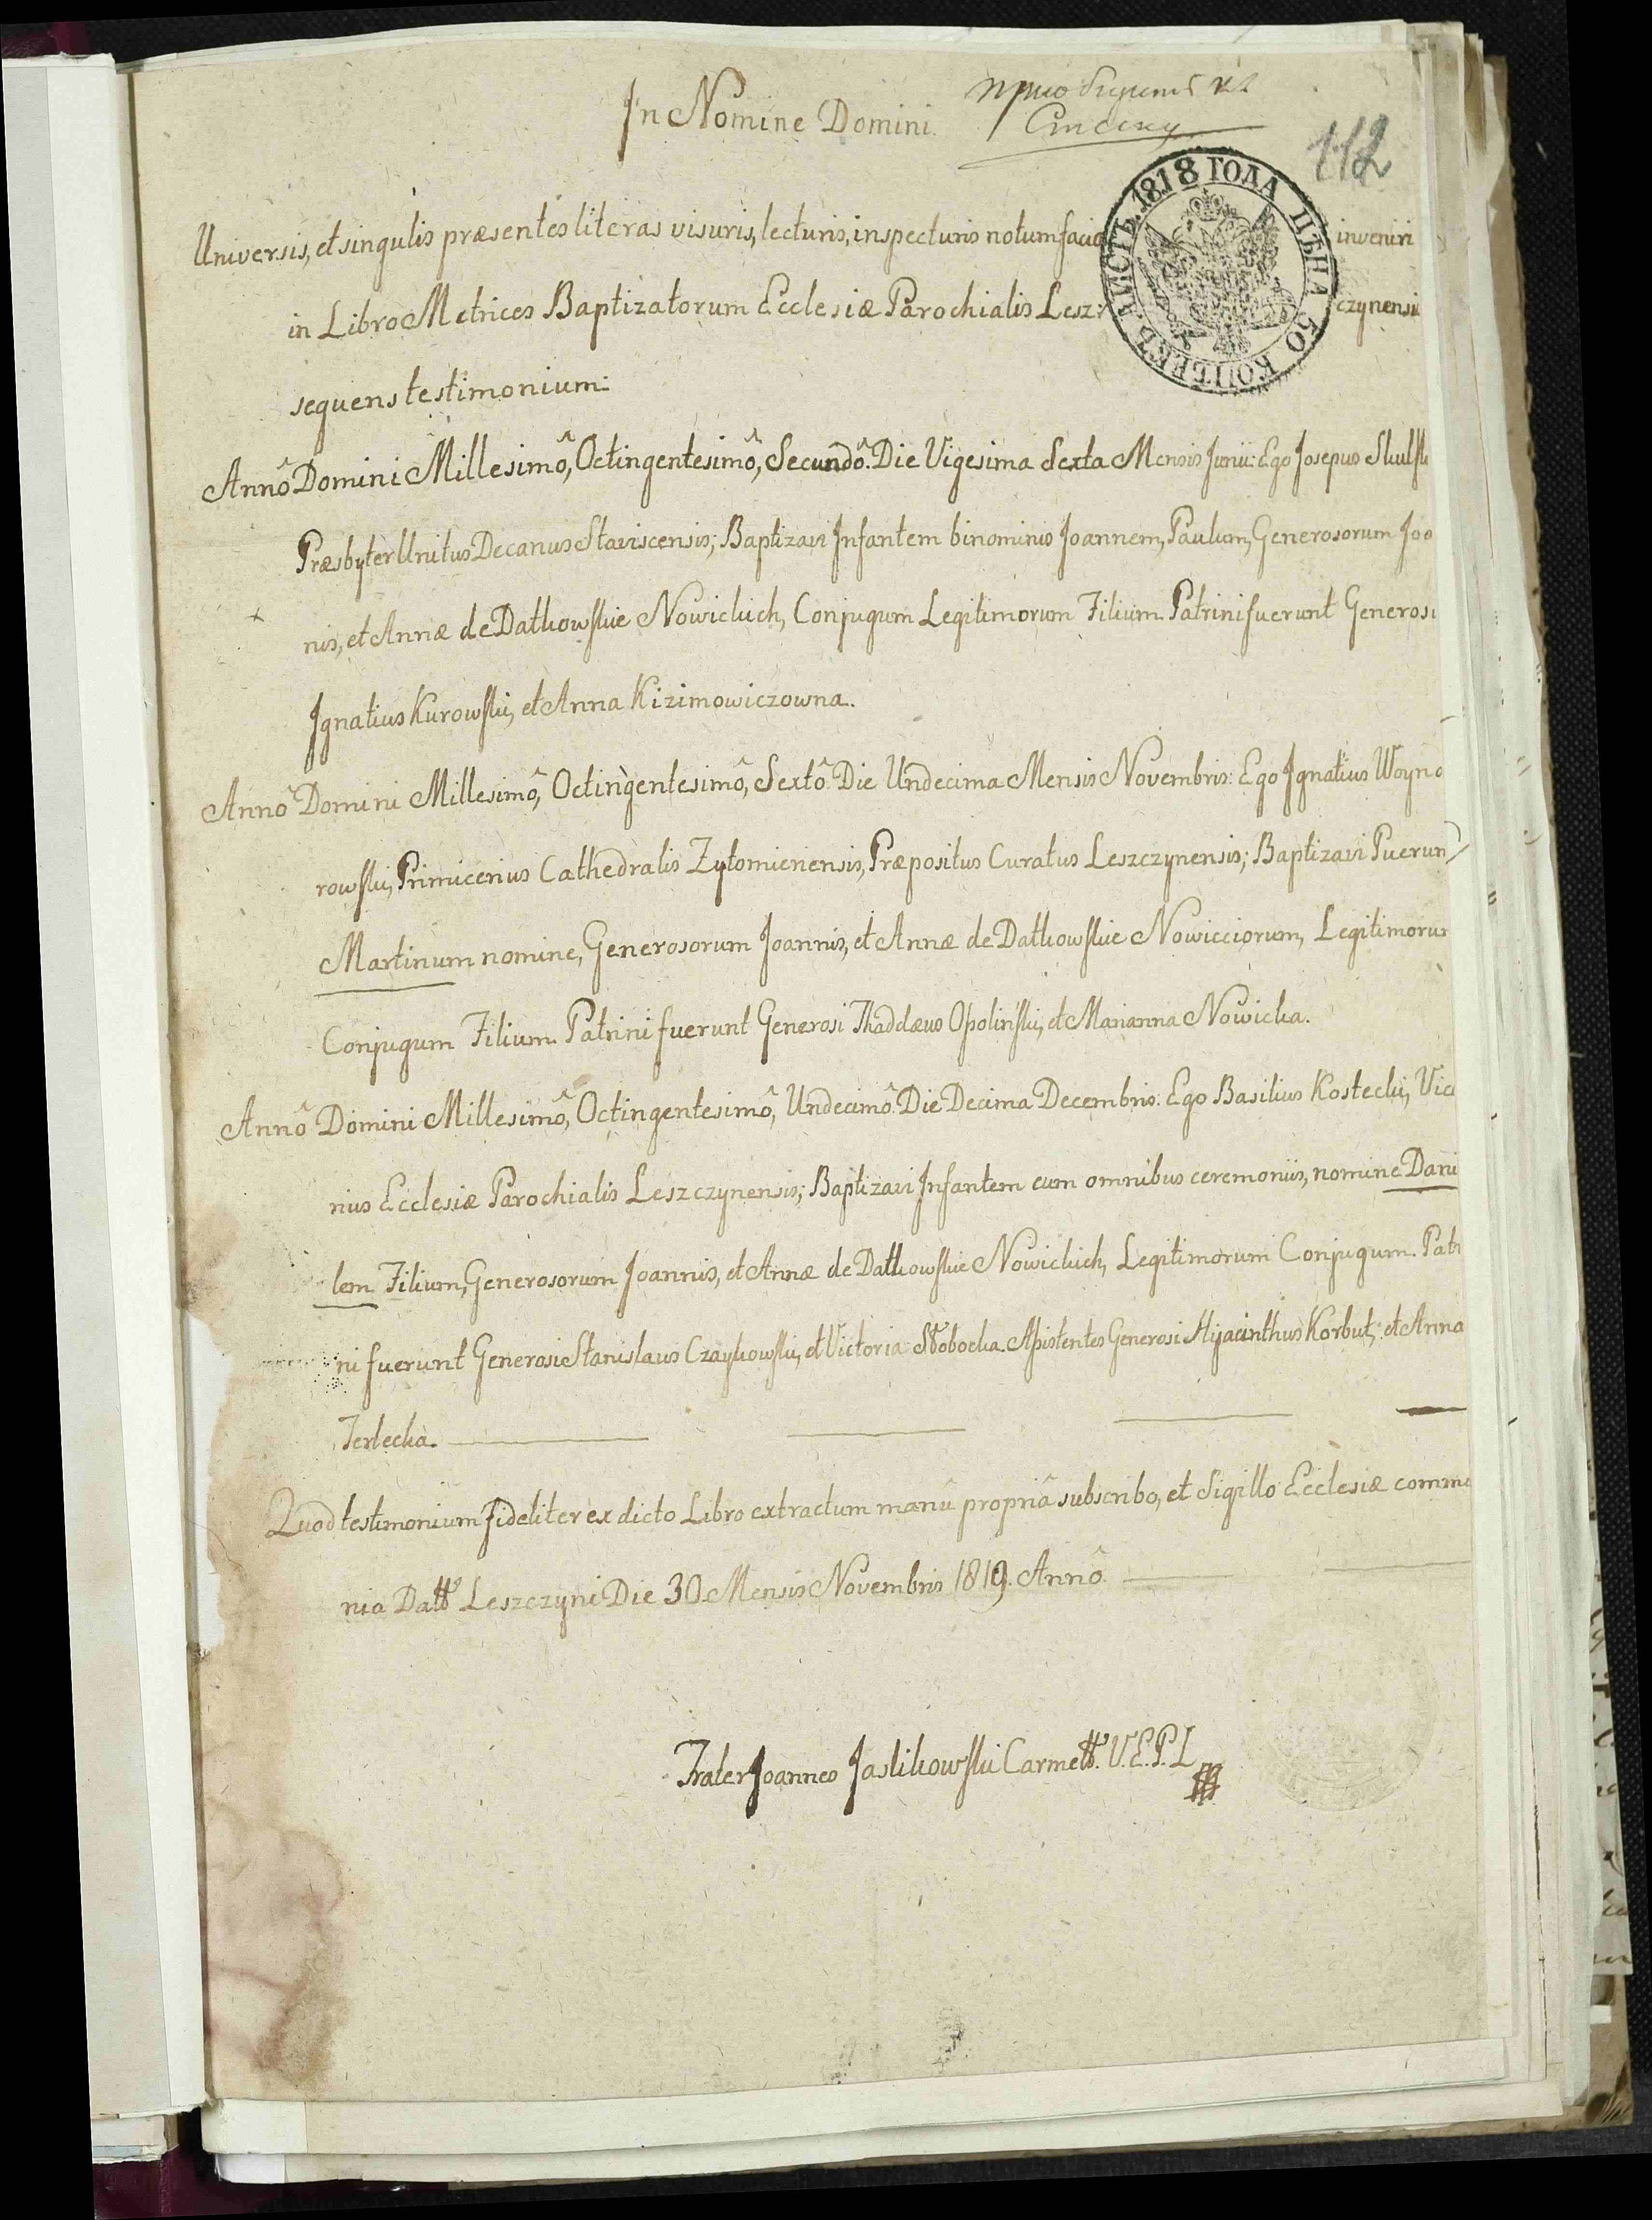 In Nomine Domini.
112
1818 ГОДА ЦѢНА 50 КОПѢЕКЪ ЛИСТЪ
Universis, et singulis præsentes literas visuris, lecturis, inspecturis notum facio inveniri
in Libro Metrices Baptizatorum Ecclesiæ Parochialis Lesz: czynensis
sequens testimonium:
Annô Domini Millesimô, Octingentesimô, Secundô. Die Vigesima Sexta Mensis Junii: Ego Josepus
Præsbyter Unitus Decanus Staviscensis; Baptizavi Infantem binominis Joannem, Paulum, Generosorum Joa
nis, et Annæ de Datkowskie Nowickich, Conjugum Legitimorum Filium. Patrini fuerunt Generosi
Ignatius Kurowski, et Anna Kizimowiczowna.
Annô Domini Millesimô, Octingentesimô, Sextô. Die Undecima Mensis Novembris: Ego Ignatius Woyno
rowski, Primicerius Cathedralis Zytomiriensis, Præpositus Curatus Leszczynensis; Baptizavi Puerum
Martinum nomine, Generosorum Joannis, et Annæ de Datkowskie Nowicciorum, Legitimorum
Conjugum Filium. Patrini fuerunt Generosi Thaddæus Opolinski, et Marianna Nowicka.
Annô Domini Millesimô, Octingentesimô, Undecimô. Die Decima Decembris. Ego Basilius Kostecki, Vica
rius Ecclesiæ Parochialis Leszczynensis; Baptizavi Infantem cum omnibus ceremoniis, nomine Dani
lem Filium, Generosorum Joannis, et Annæ de Datkowskie Nowickich, Legitimorum Conjugum. Patri
ni fuerunt Generosi Stanislaus Czaykowski, et Victoria Słobocka. Assistentes Generosi Hyacinthus Korbut, et Anna
Terlecka.
Quod testimonium fideliter ex dicto Libro extractum manû propriâ subscribo, et Sigillo Ecclesiæ commu
nio Datt Leszczyni Die 30. Mensis Novembris 1819. Annô.
Frater Joannes Jaslikowski Carmett. V.E.P.L